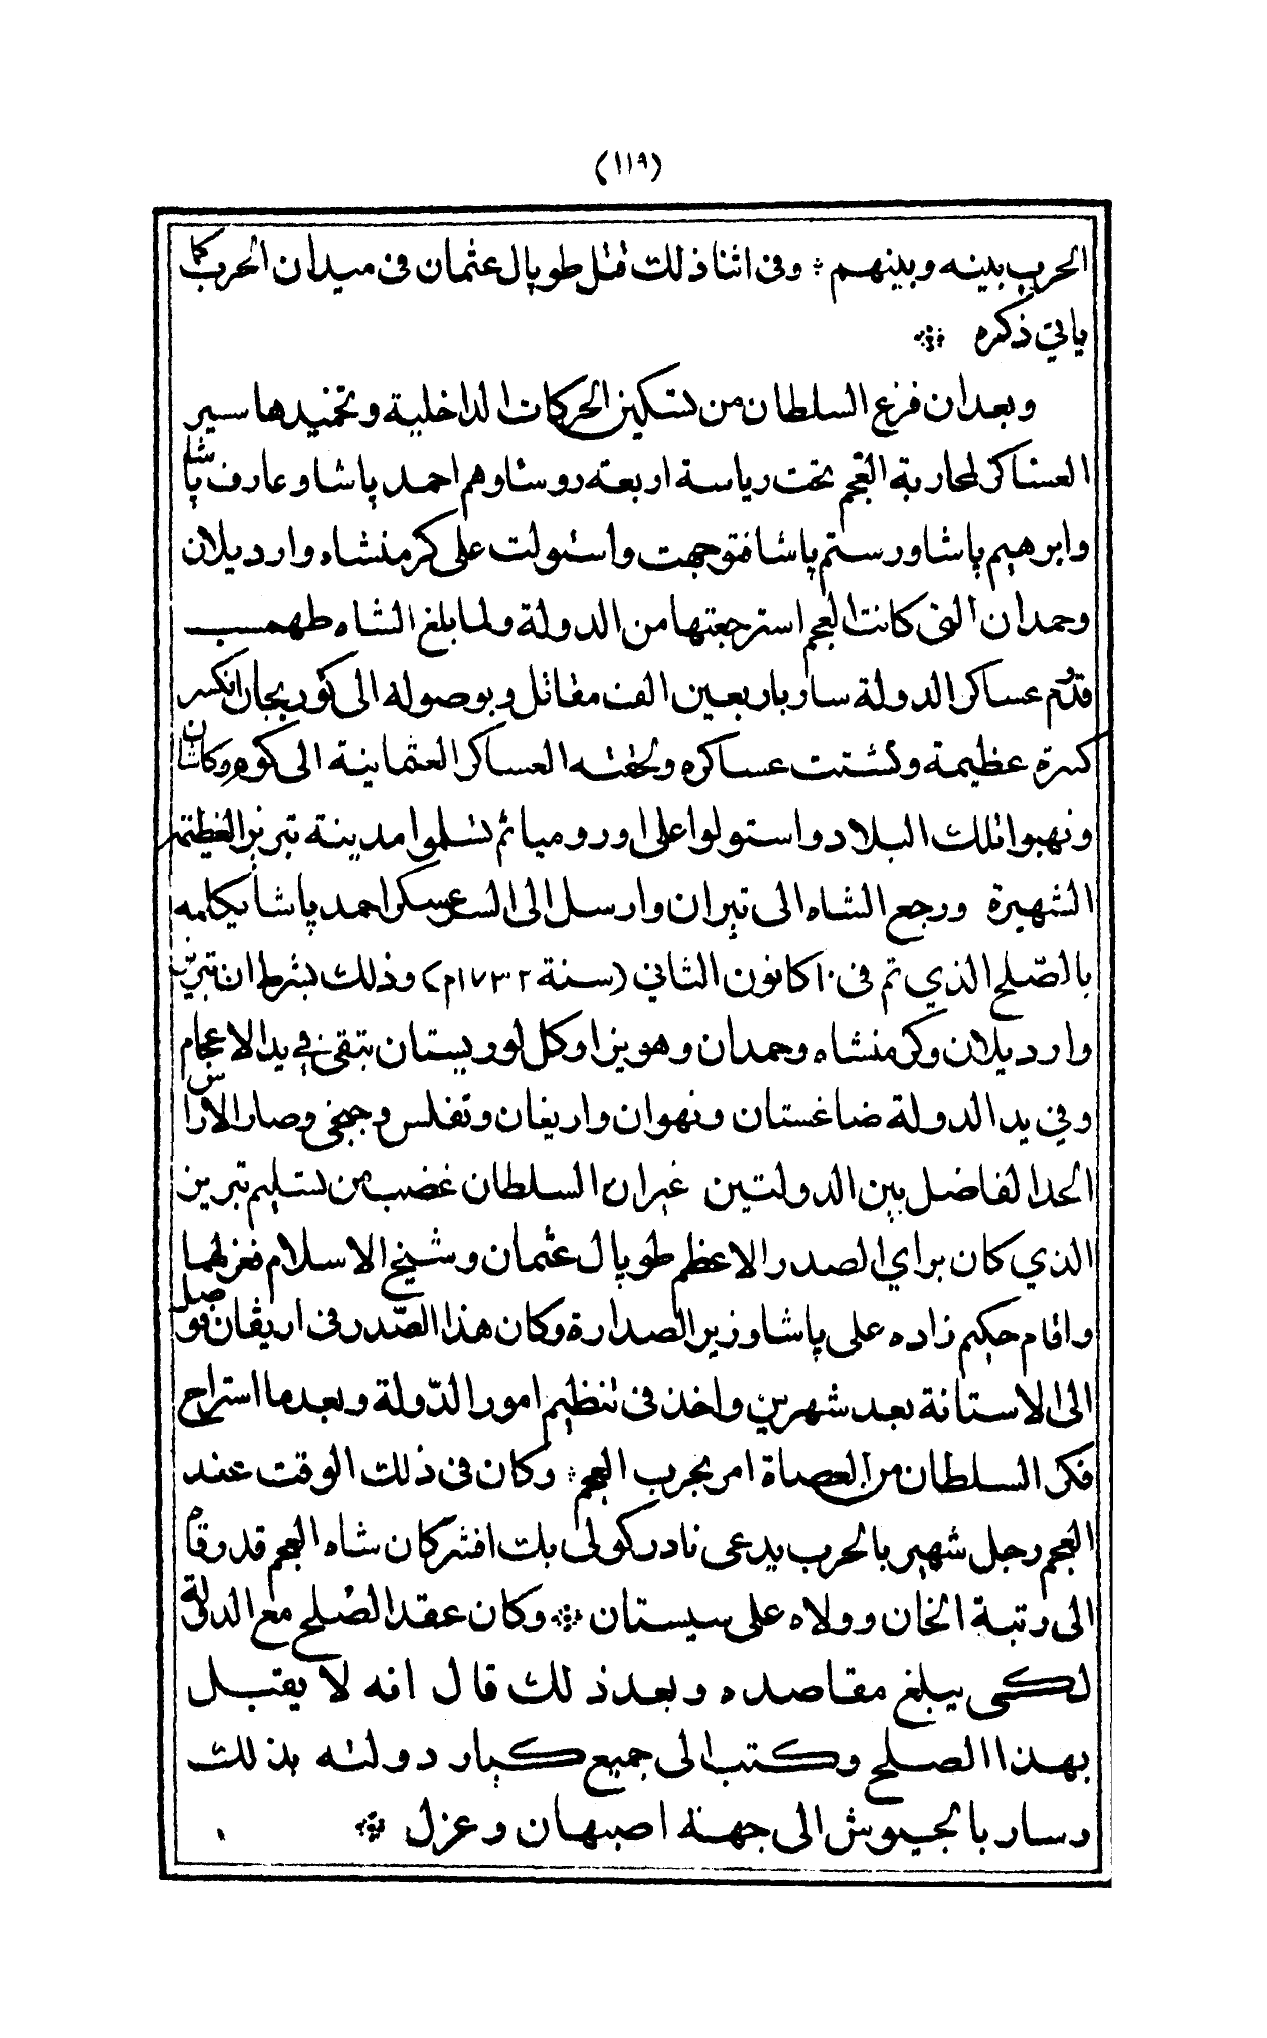 (١١٩)
الحرب بينه وبينهم ؞ وفى اثنا ذلك قتل طوپال عثمان فى ميدان الحرب كما
ياتي ذكره ؞
وبعد ان فرغ السلطان من تسكين الحركات الداخلية وتخميدها سير
العساكر لمحاربة العجم تحت رياسة اربعة روسٔا وهم احمد پاشا وعارف پاشا
وابرهيم پاشا ورستم پاشا فتوجهت واستولت على كرمنشاه وارديلان
وحمدان التى كانت العجم استرجعتها من الدولة ولما بلغ الشاه طهمسب
قدُم عساكر الدولة سار باربعين الف مقاتل وبوصوله الى كوريجان انكسر
كسرة عظيمة وتشتت عساكره ولحقته العساكر العثمانية الى كوه وكاشان
ونهبوا تلك البلاد واستولوا على اوروميا ثم تسلموا مدينة تبريز العظيمة
الشهيرة ورجع الشاه الى تهران وارسل الى السرعسكر احمد پاشا يكلمه
بالصّلح الذي تم فى ١٠ كانون الثاني (سنة ١٧٣٢م) وذلك بشرط ان تبريز
وارديلان وكرمنشاه وحمدان وهويزا وكل لووريستان تبقى في يد الاعجام
وفي يد الدولة ضاغستان ونهوان واريفان وتفلس وججخى وصار الاراس
الحد الفاضل بين الدولتين غير ان السلطان غضب من تسليم تبريز
الذي كان براي الصدر الاعظم طوپال عثمان وشيخ الاسلام فعزلهما
واقام حكيم زاده على پاشا وزير الصدارة وكان هذا الصّدر فى اريڤان فوصل
الى الاستانة بعد شهرين واخذ فى تنظيم امور الدّولة وبعدما استراح
فكر السلطان من العصاة امر بحرب العجم ؞ وكان فى ذلك الوقت عند
العجم رجل شهير بالحرب يدعى نادر كولى بك افشر كان شاه العجم قد رقاه
الى رتبة الخان وولاه على سيستان ؞ وكان عقد الصُلح مع الدولة
لكى يبلغ مقاصده وبعد ذلك قال انه لا يقبل
بهذا الصلح وكتب الى جميع كبار دولته بذلك
وسار بالجيوش الى جهة اصبهان وعزل ؞